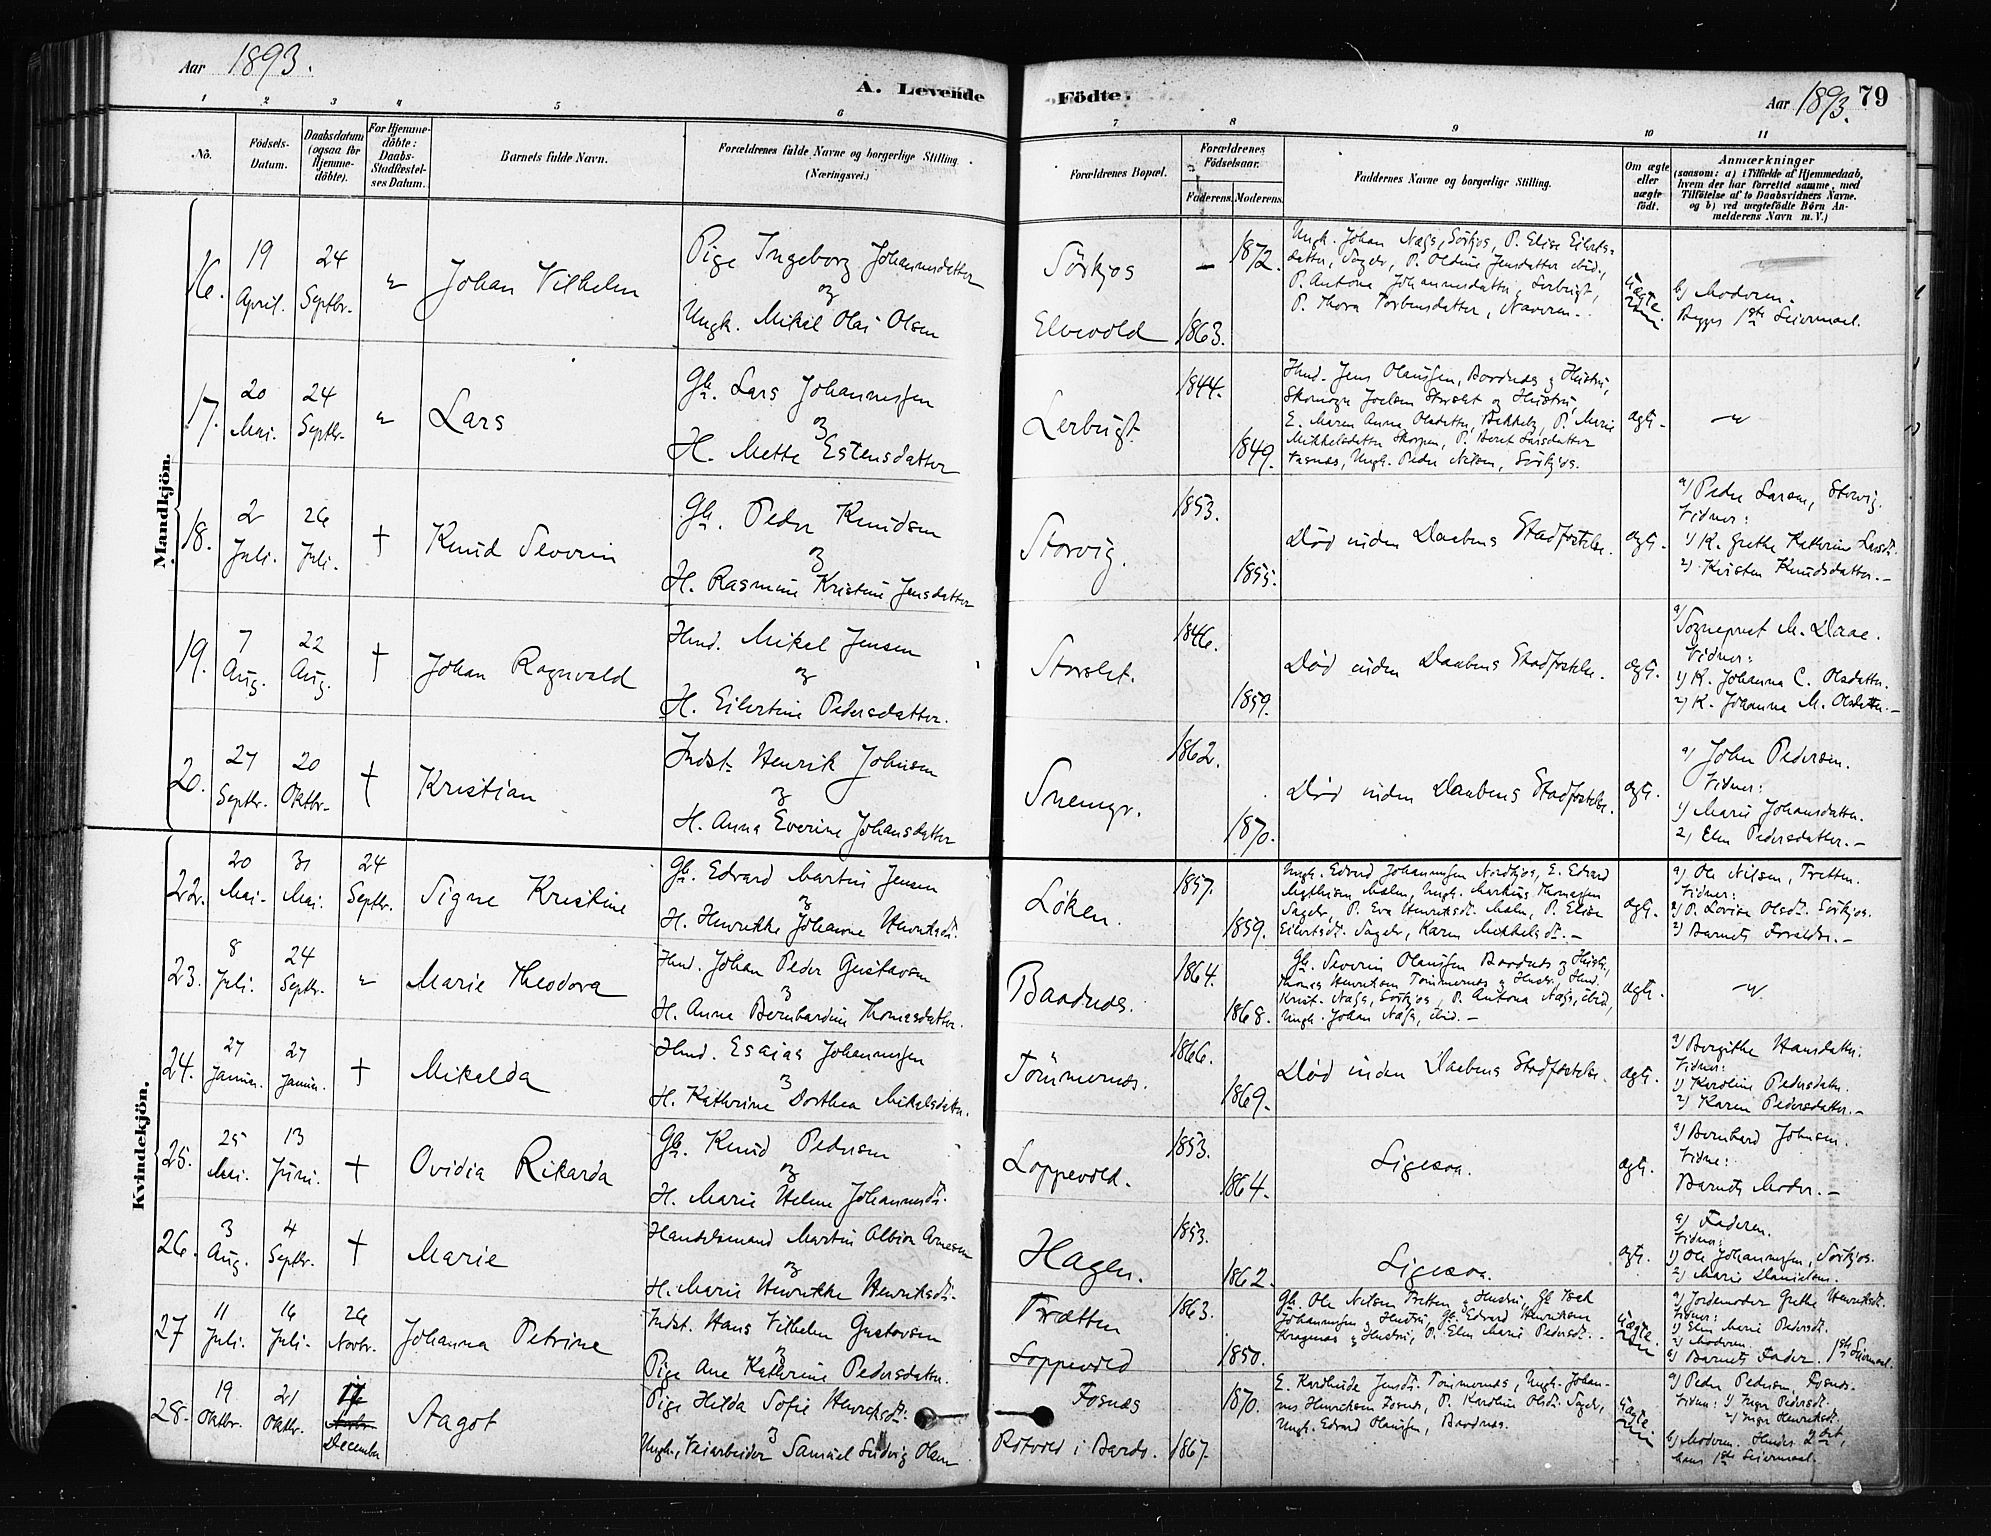 Aar 1893.
A. Levende Födte.
Aar 1893. 79
1 2 3 4 5 6 7 8 9 10 11
No.
Födsels-Datum.
Daabsdatum (ogsaa for Hjemme-döbte).
For Hjemme-döbte: Daabs-Stadfæstel-ses Datum.
Barnets fulde Navn.
Forældrenes fulde Navne og borgerlige Stilling (Næringsvei.)
Forældrenes Bopæl.
Forældrenes Födselsaar.
Faderens. Moderens.
Faddernes Navne og borgerlige Stilling.
Om ægte eller uægte födt.
Anmærkninger
(saasom: a) i Tilfælde af Hjemmedaab, hvem der har forrettet samme, med Tilföielse af to Daabsvidners Navne. og b) ved uægtefödte Börn Anmelderens Navn m. V.)
Mandkjön.
16. 19 April. 24 Septbr. " Johan Vilhelm
Pige Ingeborg Johannesdatter
og
Ungk. Mikel Olai Olsen
Sörkjos – 1872.
Elvevold 1863.
Ungk. Johan Næss, Sörkjos, P. Elise Eilerts-
datter, Sagelv, P. Oldine Jensdatter ibid.,
P. Antona Johannesdatter, Lerbugt,
P. Thora Torbensdatter, Naveren.
Uægte
b) Moderen.
Begges 1ste Leiermaal.
17. 20 Mai. 24 Septbr. " Lars
Gb. Lars Johannessen
og
H. Mette Estensdatter
Lerbugt. 1844. 1849.
Hmd. Jens Olaussen, Baadnes og Hustru,
Storslet og Hustru,
E. Maren Anna Olsdatter, P. Marie
Mikkelsdatter Skorpen, P. Beret Larsdatter
Fasnes, Ungk. Peder Nilsen, Sörkjos.
ægte.
18. 2 Juli. 26 Juli. † Knud Severin
Gb. Peder Knudsen
og
H. Rasmine Kristine Jensdatter
Storvig. 1853. 1855.
Död inden Daabens Stadfæstelse. ægte.
a) Peder Larsen, Storvig.
Vidner:
1) K. Grethe Kathrine Larsdt.
2) Kirsten Knudsdatter.
19. 7 Aug. 22 Aug. † Johan Ragnvald
Hmd. Mikel Jensen
og
H. Eilertine Pedersdatter.
Storslet. 1846. 1859.
Död inden Daabens Stadfæstelse. ægte.
a) Sognepræst M. Daae.
Vidner:
1) K. Johanna C. Olsdatter.
2) K. Johanna M. Olsdatter.
20. 27 Septbr. 20 Oktbr. † Kristian
Indst. Henrik Johnsen
og
H. Anna Everine Johansdatter
Snemyr. 1862. 1870.
Död inden Daabens Stadfæstelse. ægte.
a) John Pedersen.
Vidner:
1) Marie Johansdatter.
2) Elen Pedersdatter.
Kvindekjön.
22. 20 Mai. 31 Mai. 24 Septbr. Signe Kristine
Gb. Edvard Martin Jensen
og
H. Henrikke Johanne Henriksdt.
Löken. 1857. 1859.
Ungk. Edvard Johannessen Nordkjos, E. Edvard
Malm, Ungk. Markus Thomassen
Sagelv, P. Eva Henriksdt. Malm, P. Elise
Eilertsdt. Sagelv, Karen Mikkelsdt.
ægte.
a) Ole Nilsen, Trætten.
Vidner:
1) P. Lovise Olsdt. Sörkjos.
2) Barnets Forældre.
23. 8 Juli. 24 Septbr. " Marie Theodora
Hmd. Johan Peder Gustavsen
og
H. Anne Bernhardine Thomasdatter.
Baadnes. 1864. 1868.
Gb. Severin Olaussen Baadnes og Hustru,
Thomas Henriksen Tömmernes og Hustru, Hmd.
Krist. Næss, Sörkjos, P. Antona Næss, ibid.,
Ungk. Johan Næss, ibid.
ægte.
24. 27 Januar. 27 Januar. † Mikalda
Hmd. Esaias Johannessen
og
H. Kathrine Dorthea Mikelsdatter.
Tömmernes. 1866. 1869.
Död inden Daabens Stadfæstelse. ægte.
a) Bergithe Hansdatter.
Vidner:
1) Karoline Pedersdatter.
2) Karen Pedersdatter.
25. 25 Mai. 13 Juni. † Ovidia Rikarda
Gb. Knud Pedersen
og
H. Marie Helene Johannesdt.
Loppevold. 1853. 1864.
Ligesaa. ægte.
a) Bernhard Johnsen.
Vidne:
Barnets Moder.
26. 3 Aug. 4 Septbr. † Marie
Handelsmand Martin Albion Arnesen
og
H. Marie Henrikke Henriksdt.
Hagen. 1853. 1862.
Ligesaa. ægte.
a) Faderen.
Vidner:
1) Ole Johannessen, Sörkjos.
2) Marie Danielsen.
27 11 Juli. 16 Juli. 26 Novbr. Johanna Petrine
Indst. Hans Vilhelm Gustavsen
og
Pige Ane Kathrine Pedersdatter.
Trætten 1863.
Loppevold 1850.
Gb. Ole Nilsen Trætten og Hustru, Gb. Isak
Johannessen og Hustru, Gb. Edvard Henriksen
Kragenes og Hustru, P. Elen Marie Pedersdt.
Uægte
a) Jordemoder Grethe Henriksdt.
Vidner:
1) Elen Marie Pedersdt.
2) Moderen.
b) Barnets Fader. 1ste Leiermaal.
28. 19 Oktbr. 21 Oktbr. 17 December Aagot
Pige Hilda Sofie Henriksdt.
og
Ungk., Veiarbeider Samuel Ludvig Olsen
Fosnes 1870.
Rotvold i Bardo. 1867.
E. Jensdt. Tömmernes, Ungk. Johan-
nes Henriksen Fosnes, P. Karoline Olsdt. Sagelv,
Ungk. Edvard Olaussen, Baadnes.
Uægte
a) Peder Pedersen, Fosnes.
Vidner: 1) Inger Pedersdt.
2) Inger Henriksdt.
b) Moderen. Hendes 2det,
hans 1ste Leiermaal.